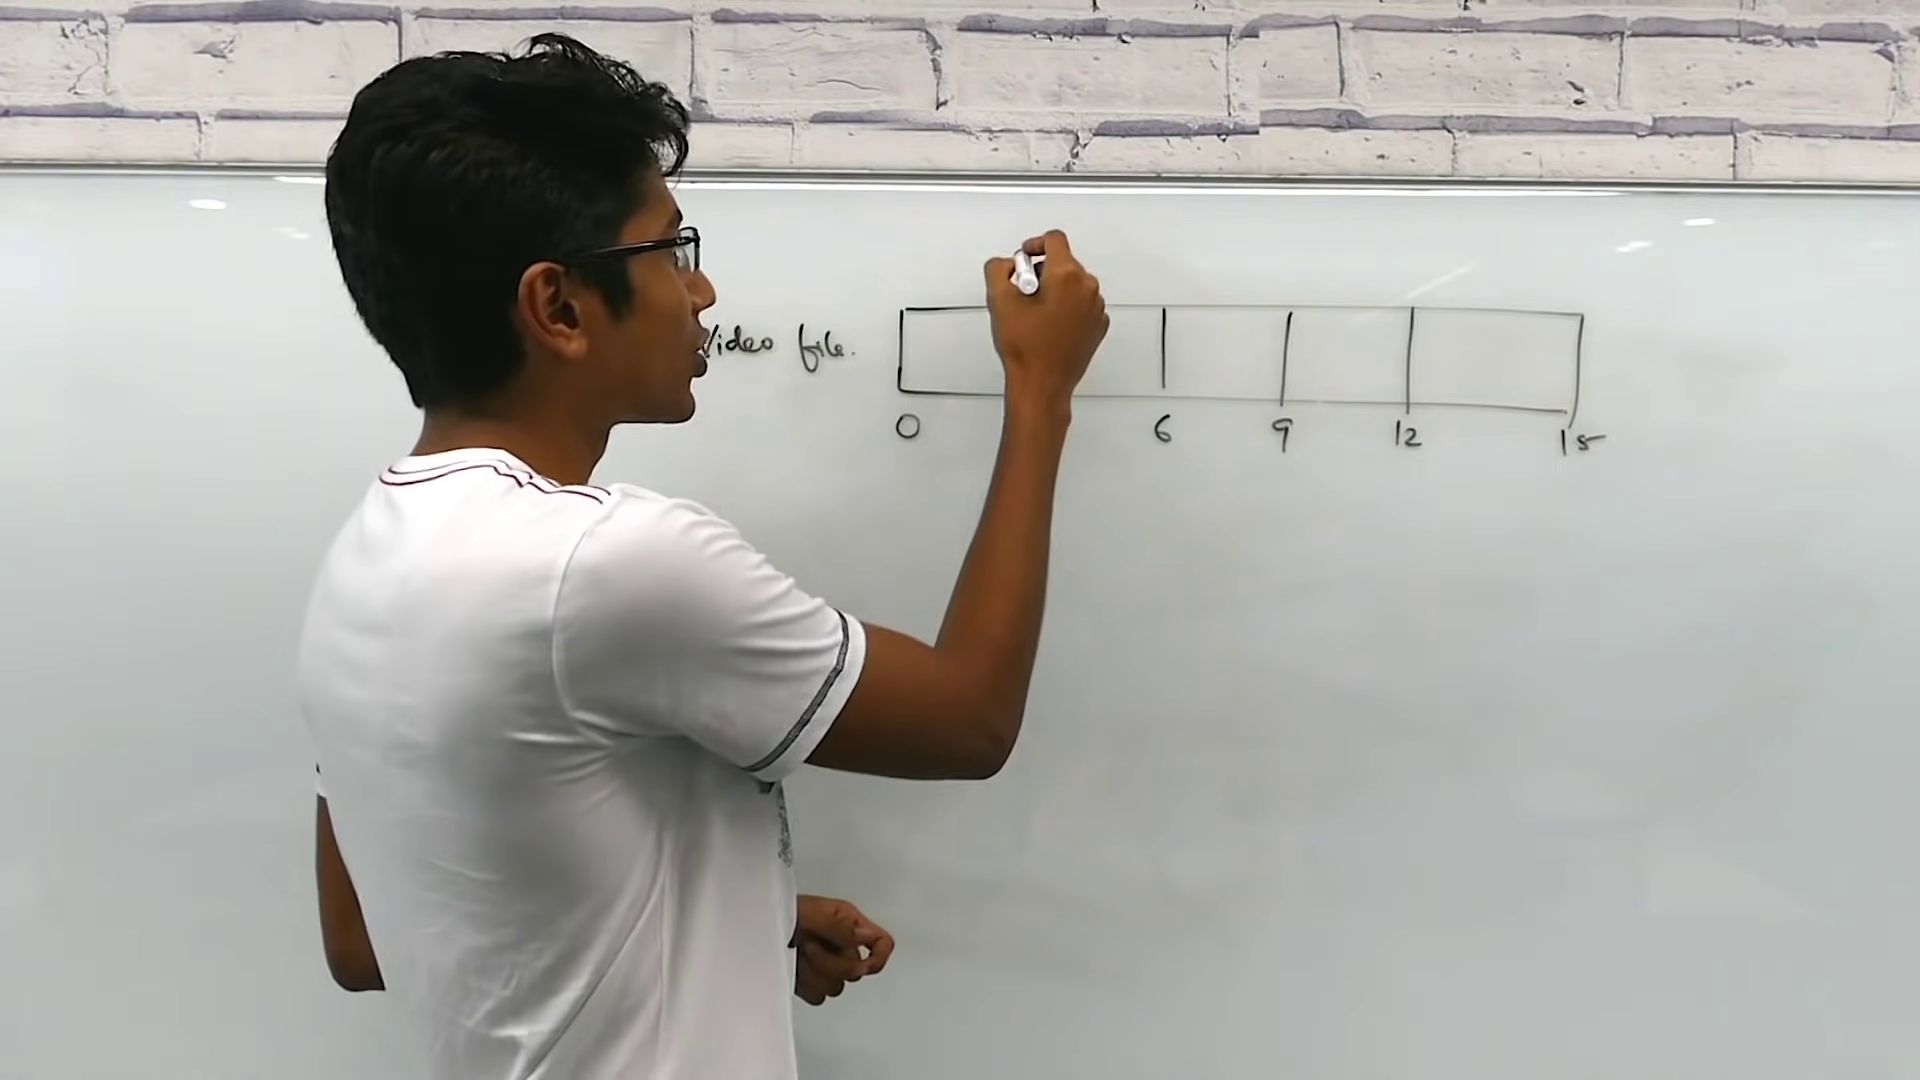 Video file.
0 6 9 12 15